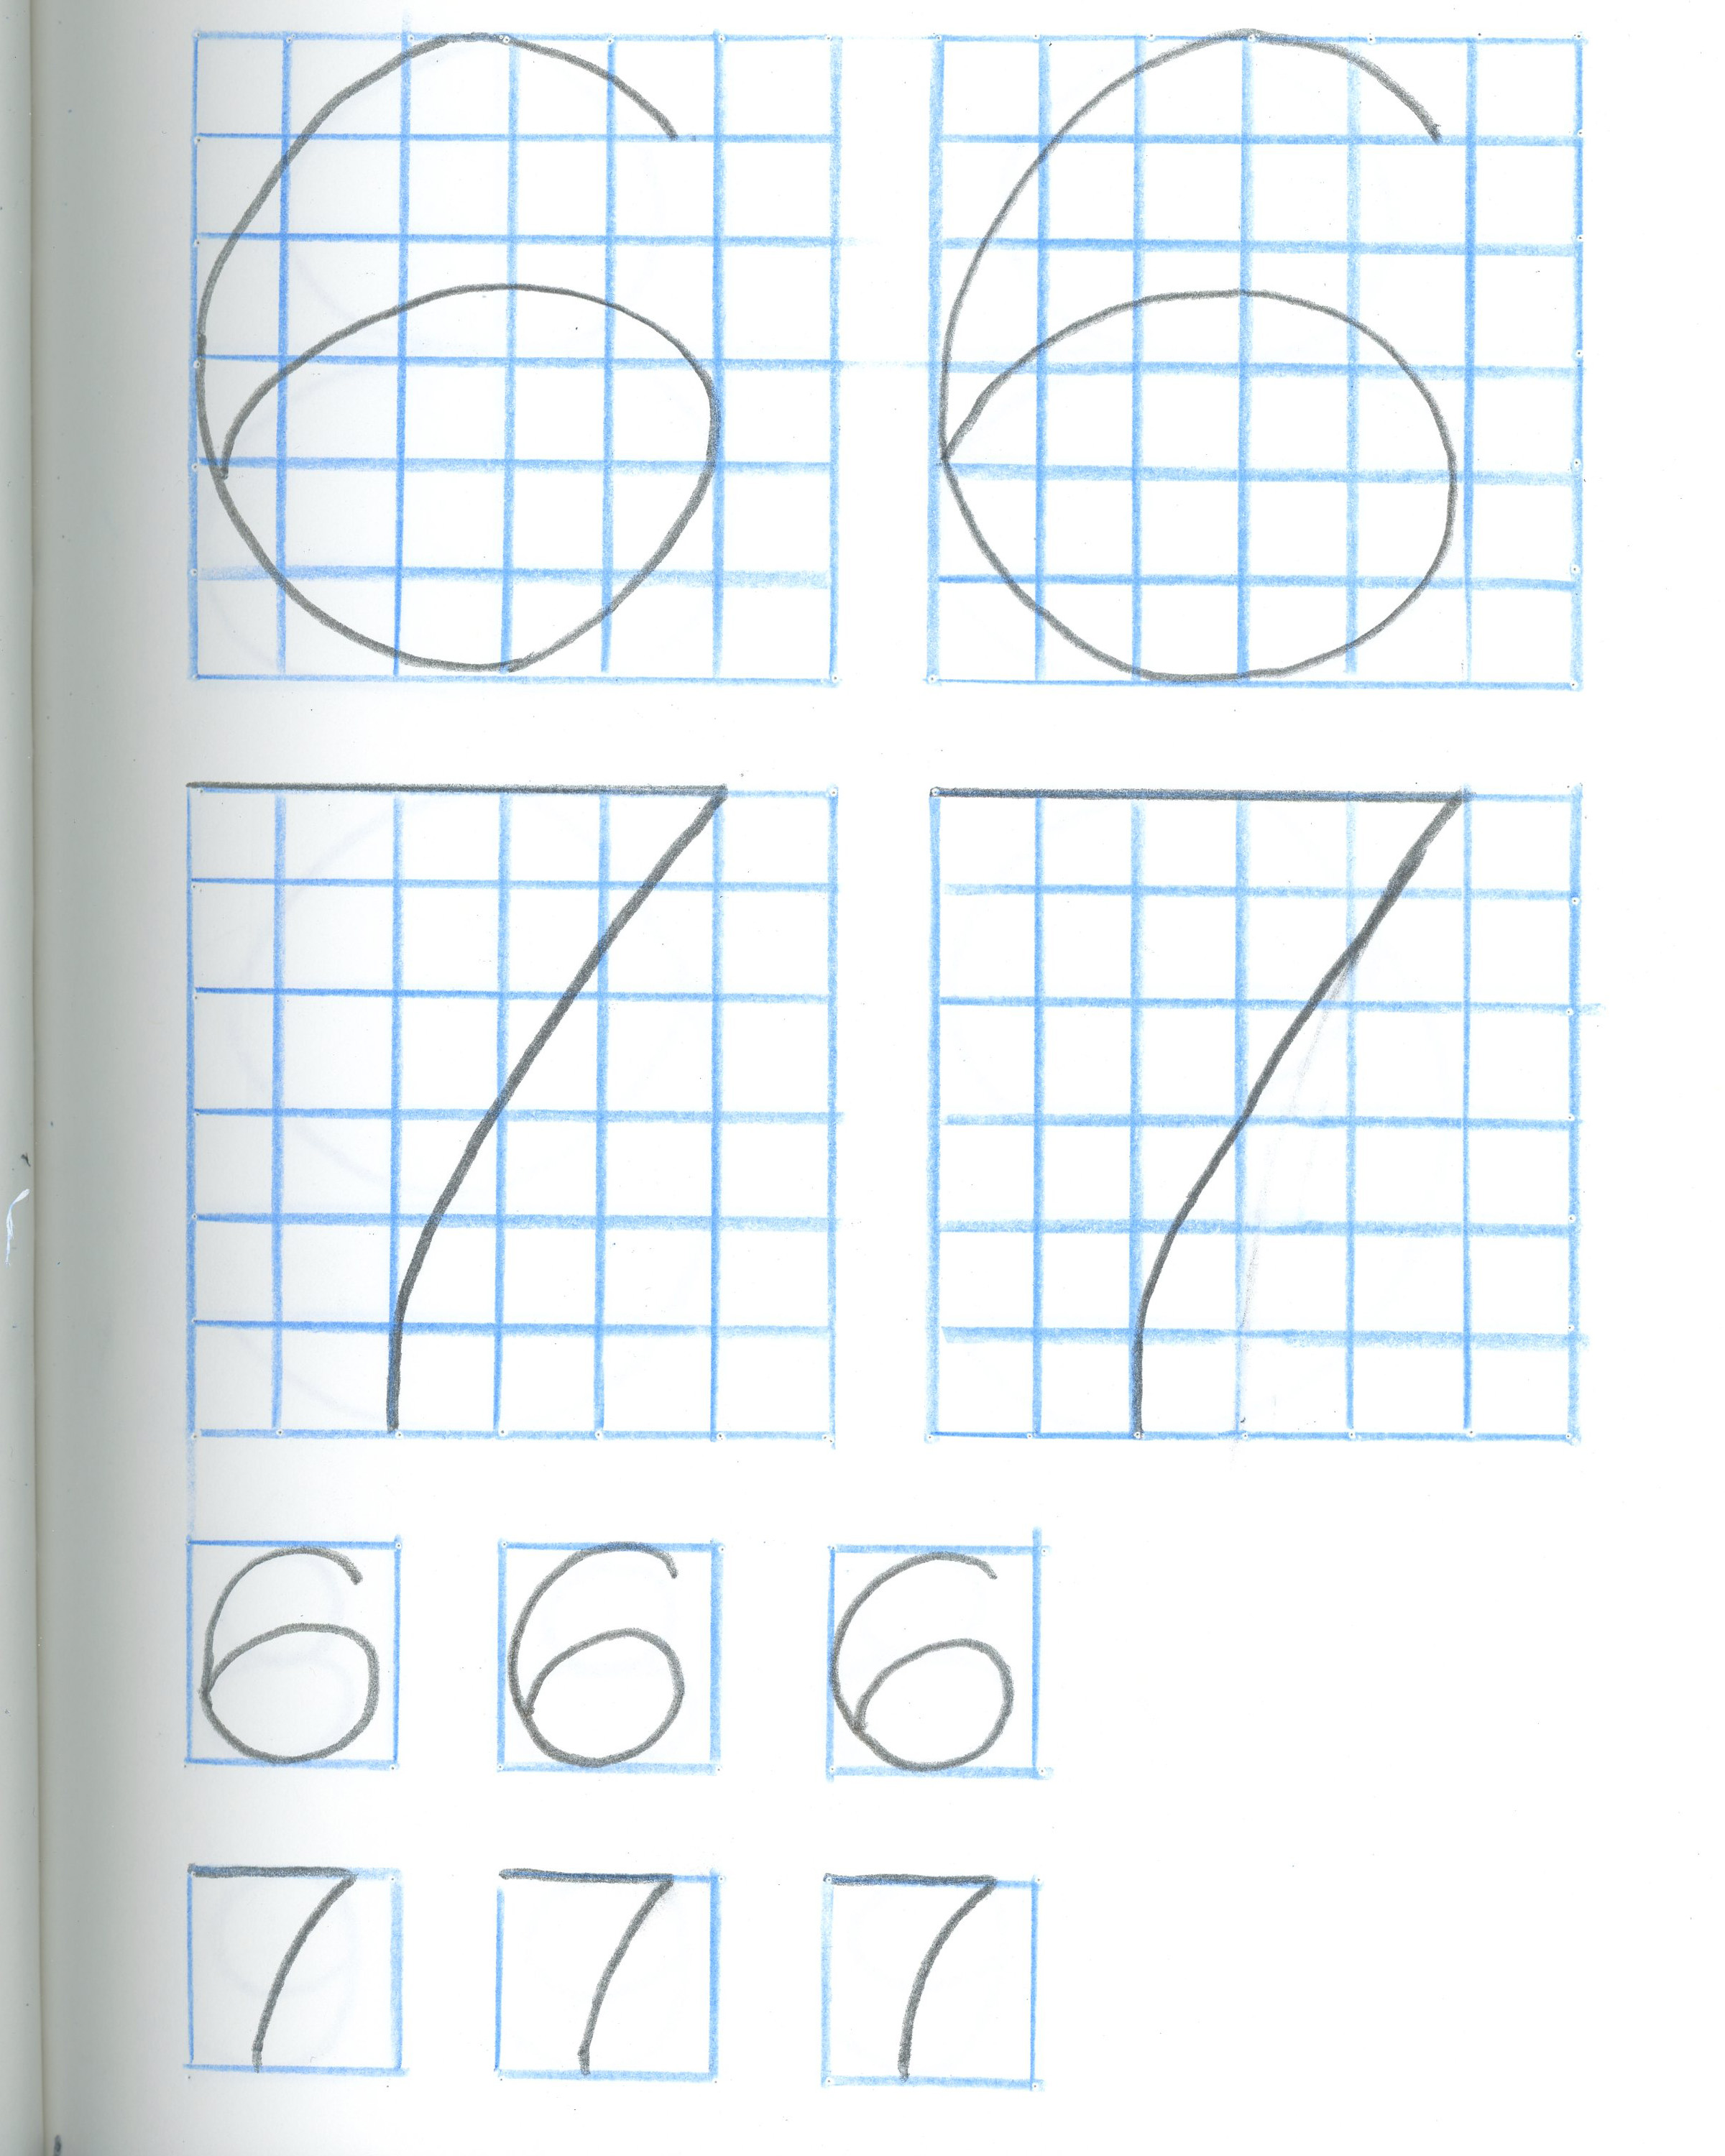 6 6
7 7
6 6 6
7 7 7